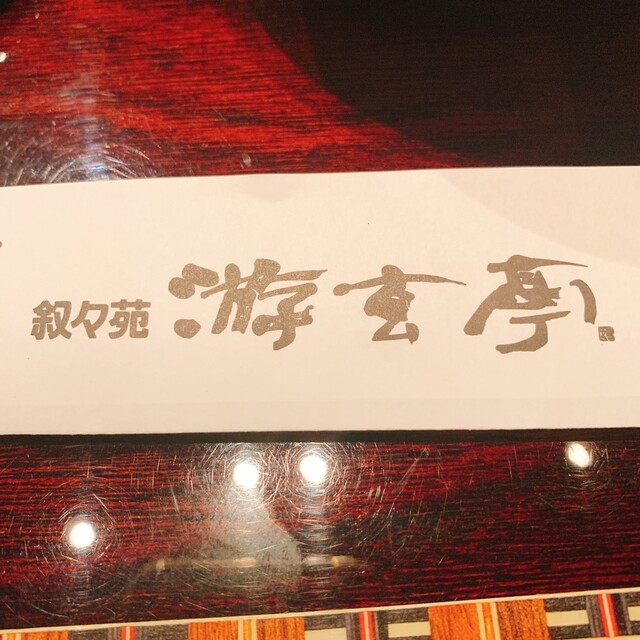 叙々苑 游玄亭